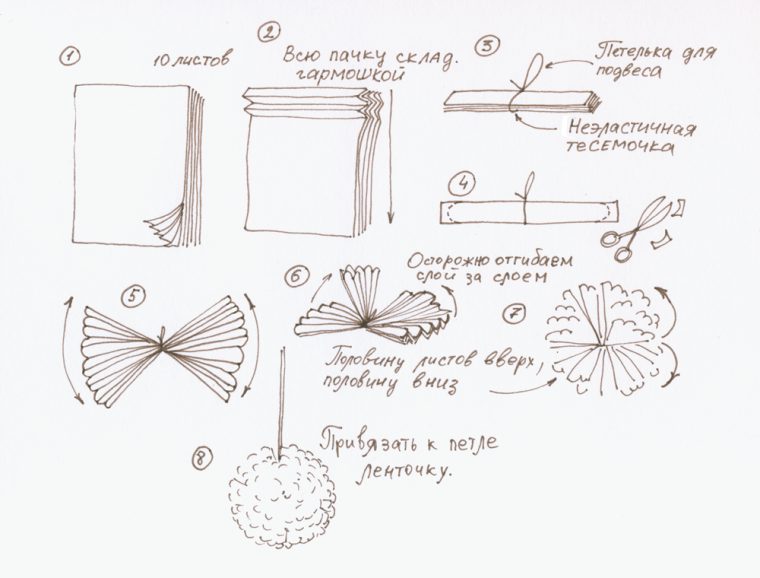 1
10 листов
2
Всю пачку склад.
гармошкой
3
Петелька для
подвеса
Неэластичная
тесёмочка
4
5
6
Осторожно отгибаем
слой за слоем
7
Половину листов вверх,
половину вниз
8
Привязать к петле
ленточку.